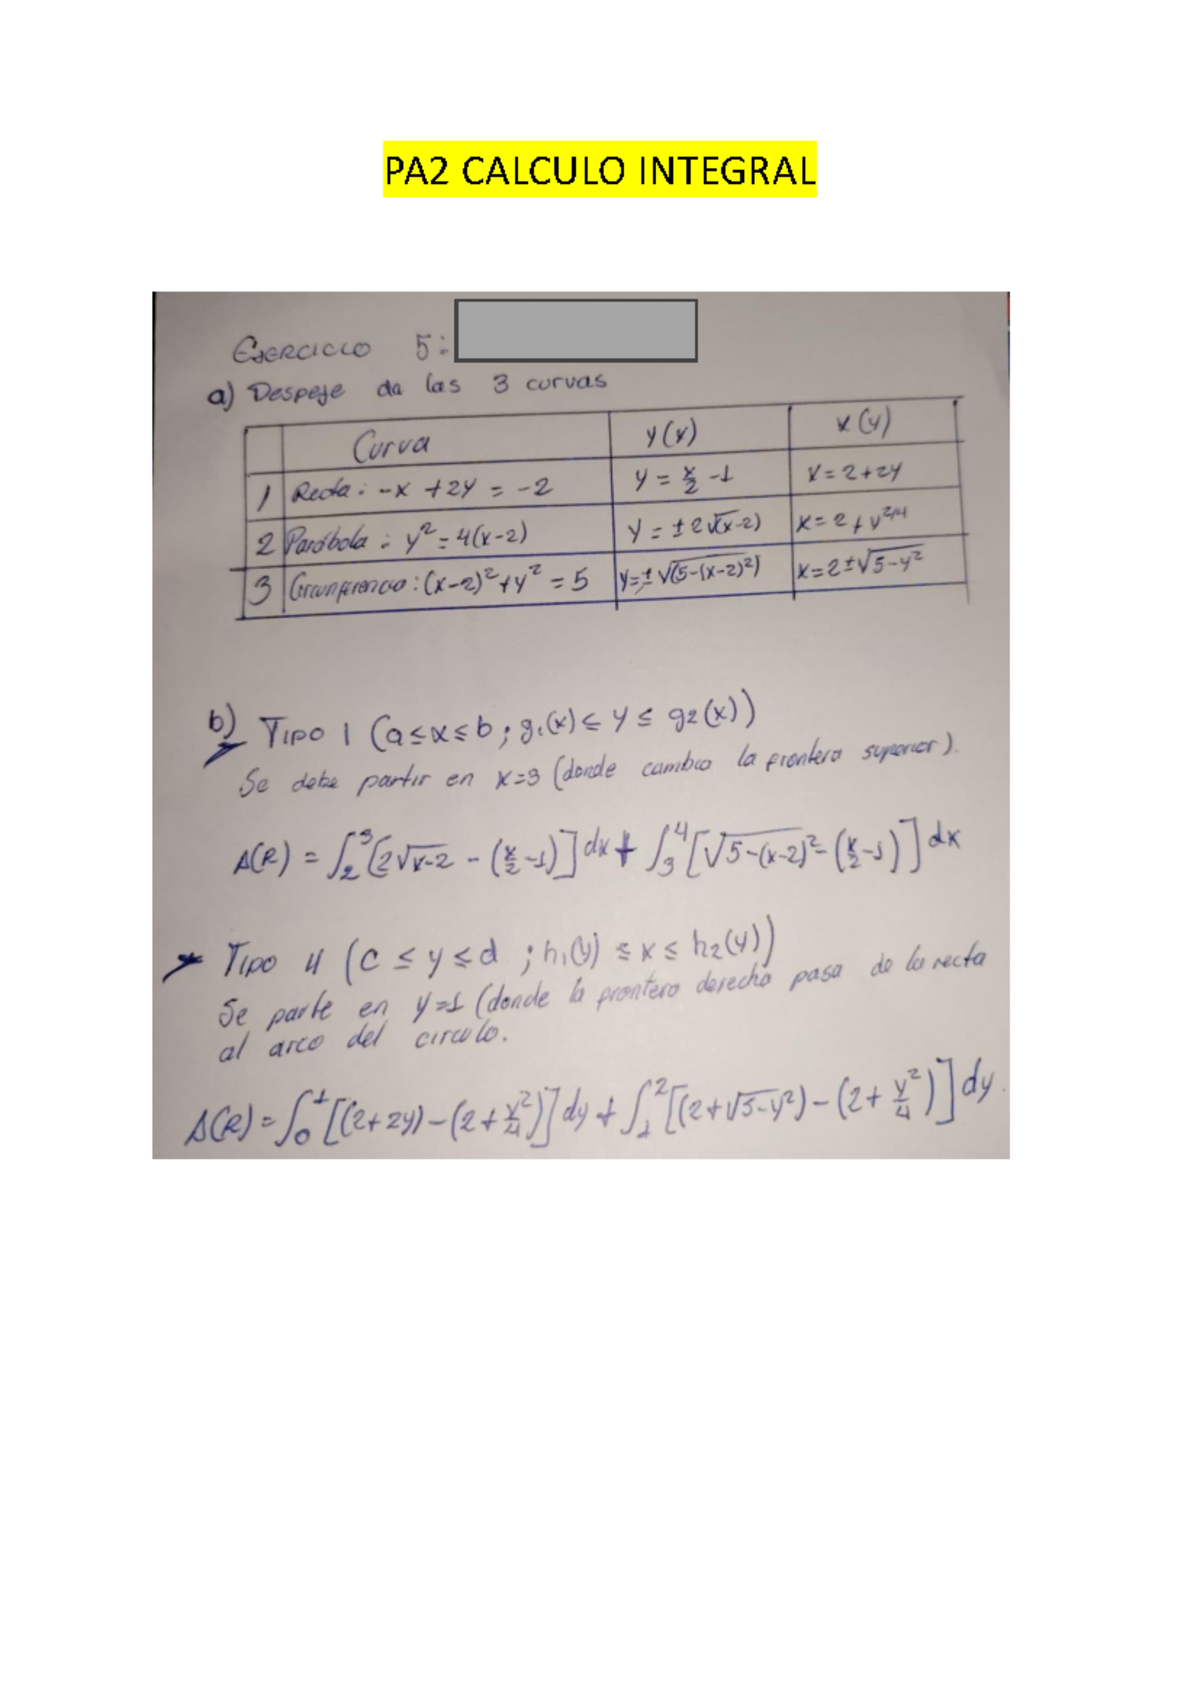 PA2 CALCULO INTEGRAL
Ejercicio 5:
a) Despeje da las 3 curvas
Curva y(x) x(y)
1 Recta: -x + 2y = -2 y = x/2 - 1 x = 2 + 2y
2 Parábola: y² = 4(x-2) y = ± 2√(x-2) x = 2 + y^2/4
3 Circunferencia: (x-2)² + y² = 5 y = ± √(5-(x-2)²) x = 2 ± √5-y²
b) Tipo I (a ≤ x ≤ b ; g₁(x) ≤ y ≤ g2(x))
Se debe partir en x=3 (donde cambia la frontera superior).
A(R) = ∫₂³ [2√x-2 - (x/2 - 1)] dx + ∫₃⁴ [√5-(x-2)² - (x/2 - 1)] dx
Tipo II (c ≤ y ≤ d ; h₁(y) ≤ x ≤ h₂(y))
Se parte en y=1 (donde la frontera derecha pasa de la recta
al arco del circulo.
A(R) = ∫₀¹ [(2+2y) - (2 + y²/4)] dy + ∫₁² [(2+√5-y²) - (2 + y²/4)] dy.